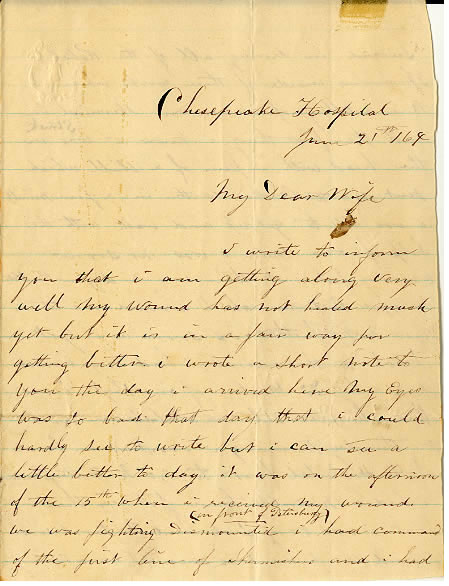 Chesepeake Hospital
June 21st /64
My Dear Wife
I write to inform
you that i am getting along very
well My wound has not healed much
yet but it is in a fair way for
getting better. i wrote a short note to
you the day i arrived here My Eyes
was so bad that day that i could
hardly see to write but i can see a
little better to day it was on the afternoon
of the 15th When i received my wound.
(in front of Petersburg)
we was fighting dismounted i had command
of the first line of skirmishers and i had